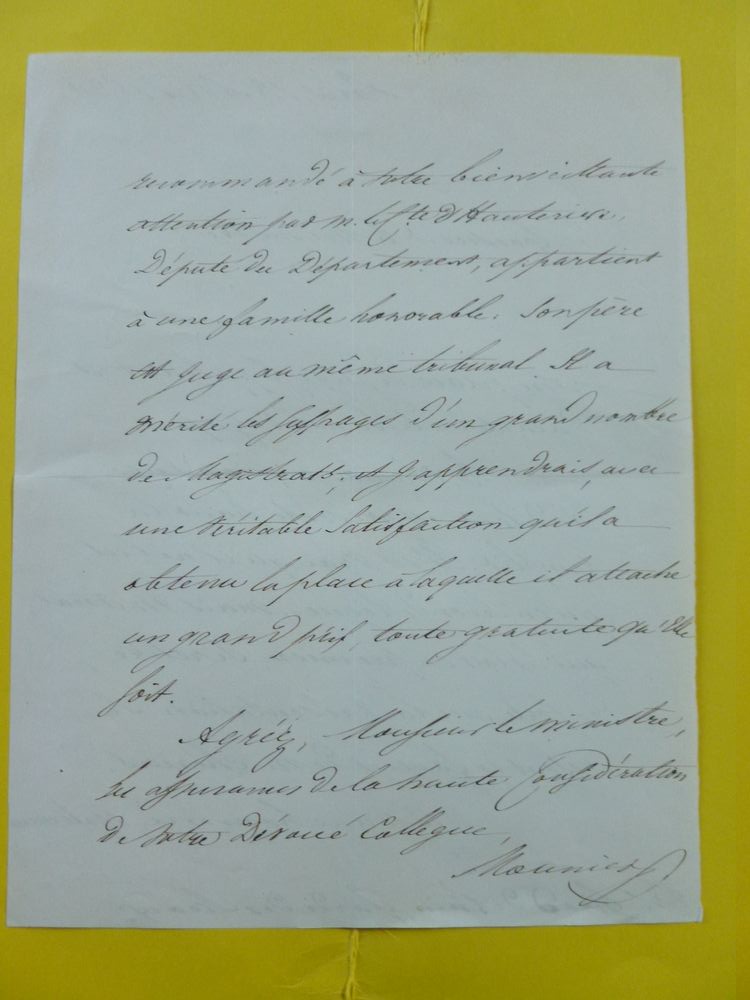 recommandé à votre bienveillante
attention par M. le Cte d'Hauterive,
Député du Département, appartient
à une famille honorable. Son père
est Juge au même tribunal. Il a
mérité les suffrages d'un grand nombre
de Magistrats, et J'apprendrais, avec
une véritable satisfaction qu'il a
obtenu la place à laquelle il attache
un grand prix, toute gratuite qu'elle
soit.
Agréez, Monsieur le ministre,
les assurances de la haute Considération
de votre Dévoué Collegue,
Mounier